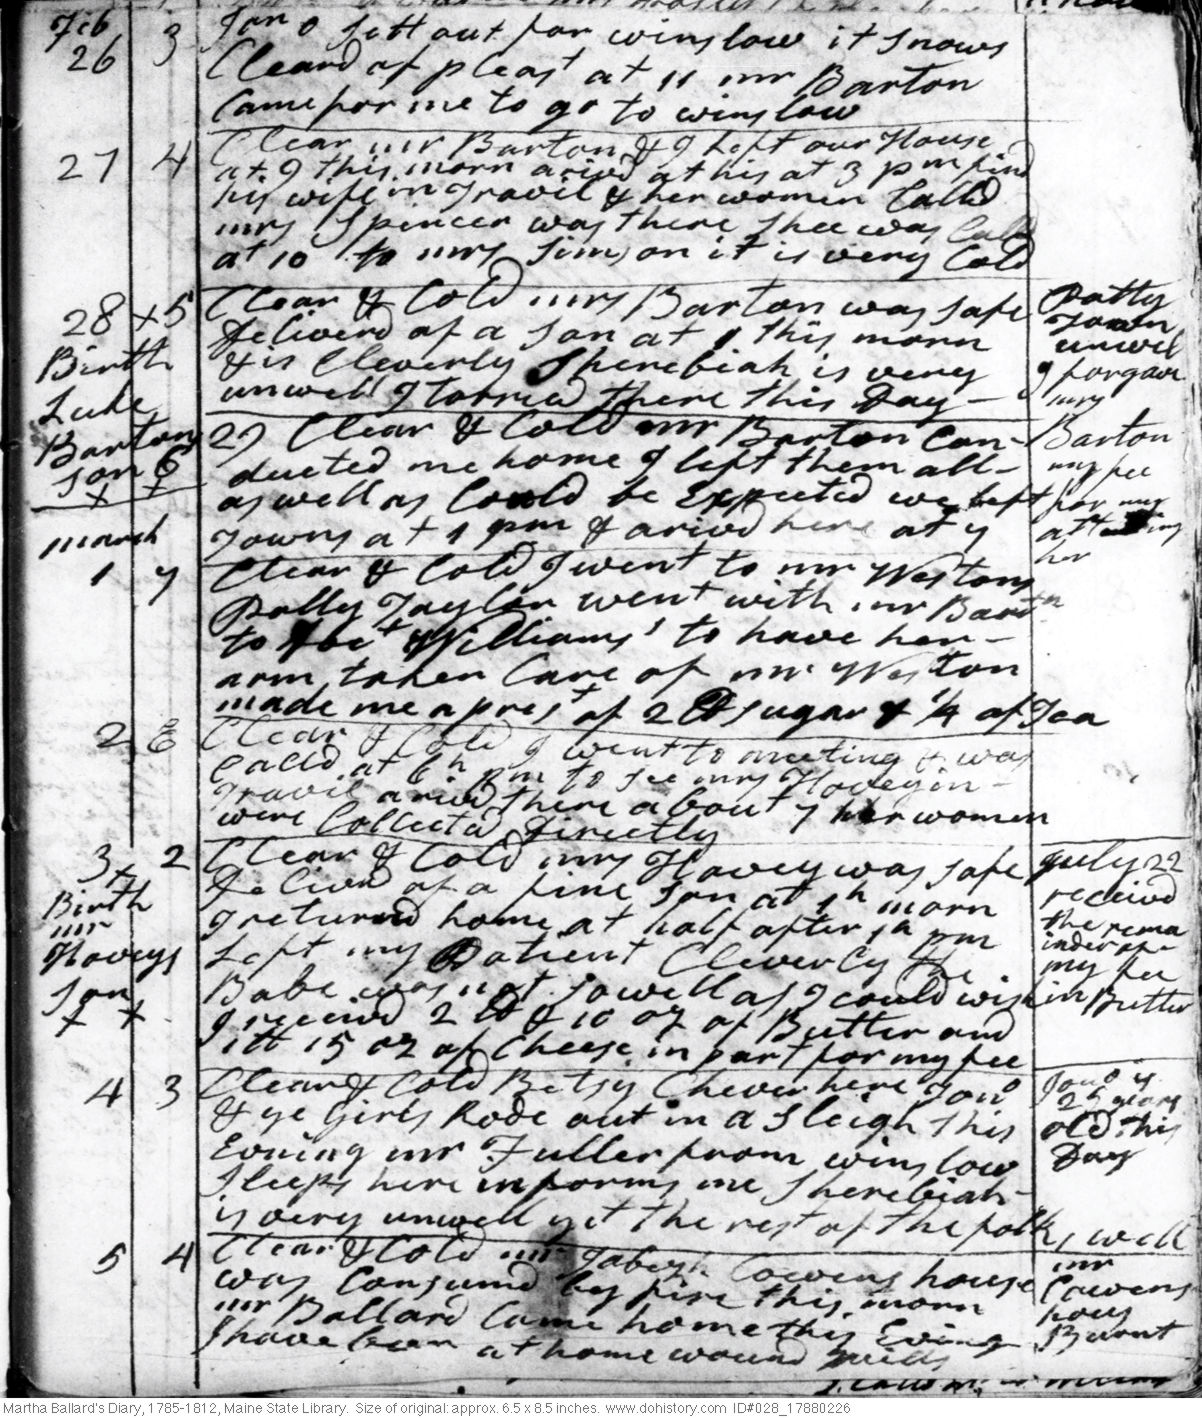 Feb 26 3 Jon o sett out for winslow it Snows
Cleard of pleast at 11 mr Barton
Came for me to go to winslow
27 4 Clear mr Barton & I left our House
at 9 this morn arivd at his at 3 pm find
his wife in Travil & her women Calld
mrs Spencer was there Shee was Calld
at 10 to mrs Simson it is very Cold
28 x 5 Clear & Cold mrs Barton was safe
Deliverd of a Son at 1 this morn
& is Cleverly Sherebiah is very
unwell I tarried there this Day
Birth
Luke
Barton
Son
x x
Patty
Town
unwel
I forgave
mrs
Barton
my fee
for my
attending
her
29 Clear & Cold mr Barton Con-
6 ducted me home I left them all
as well as Could be Expected we left
Towns at 1 pm & arivd here at 7
march
1 7 Clear & Cold I went to mr Westons
Polly Taylor went with mr Bartn
to Doct Williams' to have her
arm taken Care of mr Weston
made me a prest of 2 lb Sugar & 1/4 of Tea
2 E Clear & Cold I went to meeting & was
Calld at 6 h pm to See mrs Hovey in
Travil arivd there about 7 her women
were Collected Directly
3 x 2 Clear & Cold mrs Hovey was safe
Delivrd of a fine Son at 1 h morn
I returnd home at half after 1 h pm
Left my Patient Cleverly the
Babe was not so well as I could wish
I receivd 2 lb & 10 oz of Butter and
1 lb 15 oz of Cheese in part for my fee
Birth
mr
Hoveys
Son
x x
July 22
receivd
the rema
inder of
my fee
in Butter
4 3 Clear & Cold Betsy Chever here Jono
& ye Girls Rode out in a Sleigh this
Evining mr Fuller from winslow
Sleeps here informs me Sherebiah
is very unwell yet the rest of the folks well
Jono is
25 years
old this
Day
5 4 Clear & Cold mr Cowens house
was Consumd by fire this morn
mr Ballard Came home this Evning
I have been at home wound
mr
Cowens
hous
Burnt
Martha Ballard's Diary, 1785-1812, Maine State Library. Size of original: approx. 6.5 x 8.5 inches. www.dohistory.com ID#028_17880226